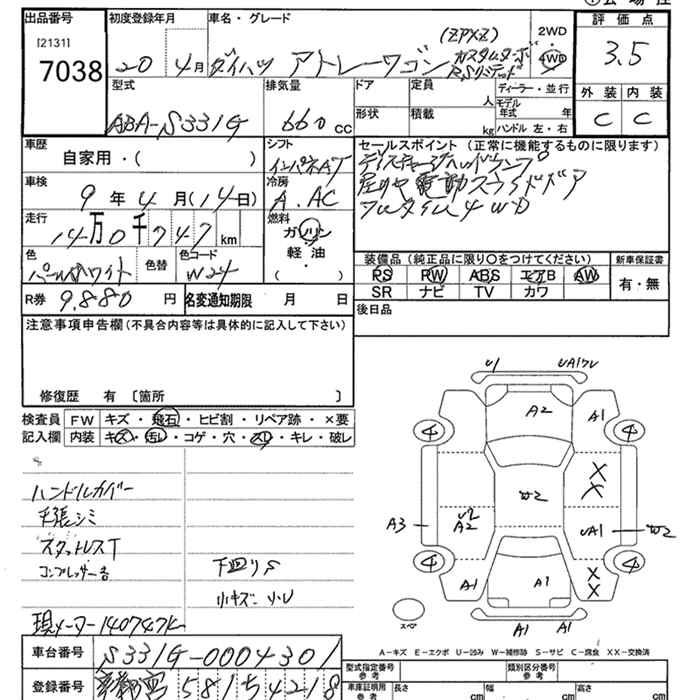 出品番号 初度登録年月 車名・グレード 2WD 評価点
[2131] (ZPXZ)
7038 20年4月 ダイハツ アトレーワゴン カスタムターボ RSリミテッド 4WD 3.5
型式 排気量 ドア 定員 人 ディーラー・並行 外装 内装
ABA-S331G 660cc 形状 積載 kg モデル年式 年 C C
ハンドル 左・右
車歴 シフト セールスポイント(正常に機能するものに限ります)
自家用・( ) インパネAT ディスチャージヘッドランプ
車検 冷房
9年4月(14日) A.AC 電動スライドドア
走行 燃料 フルタイム4WD
14万0千747km ガソリン
色 色替 色コード 軽油 装備品(純正品に限り○をつけてください) 新車保証書
パールホワイト W24 ( ) PS PW ABS エアB AW 有・無
SR ナビ TV カワ
R券 9.880円 名変通知期限 月 日 後日品
注意事項申告欄(不具合内容等は具体的に記入して下さい)
修復歴 有〔箇所 〕
検査員 FW キズ・飛石・ヒビ割・リペア跡・×要
記入欄 内装 キズ・汚レ・コゲ・穴・スレ・キレ・破レ
ハンドルカバー
天張シミ
スタットレスT
コンプレッサー音 下回りS
小キズ・小U
現メーター140747K
U1 UA1ワレ
A2 A1
4 4
X
X
A3 U2 A2 W2 UA1 W2
4 4
X
X
A1 A1
スペア
A1 A1
A-キズ E-エクボ U-凹み W-補修跡 S-サビ C-腐食 XX-交換済
車台番号 S331G-0004301
登録番号 京都 581 5 4218
型式指定番号 参考 類別区分番号 参考
車庫証明用 参考 長さ cm 幅 cm 高さ cm